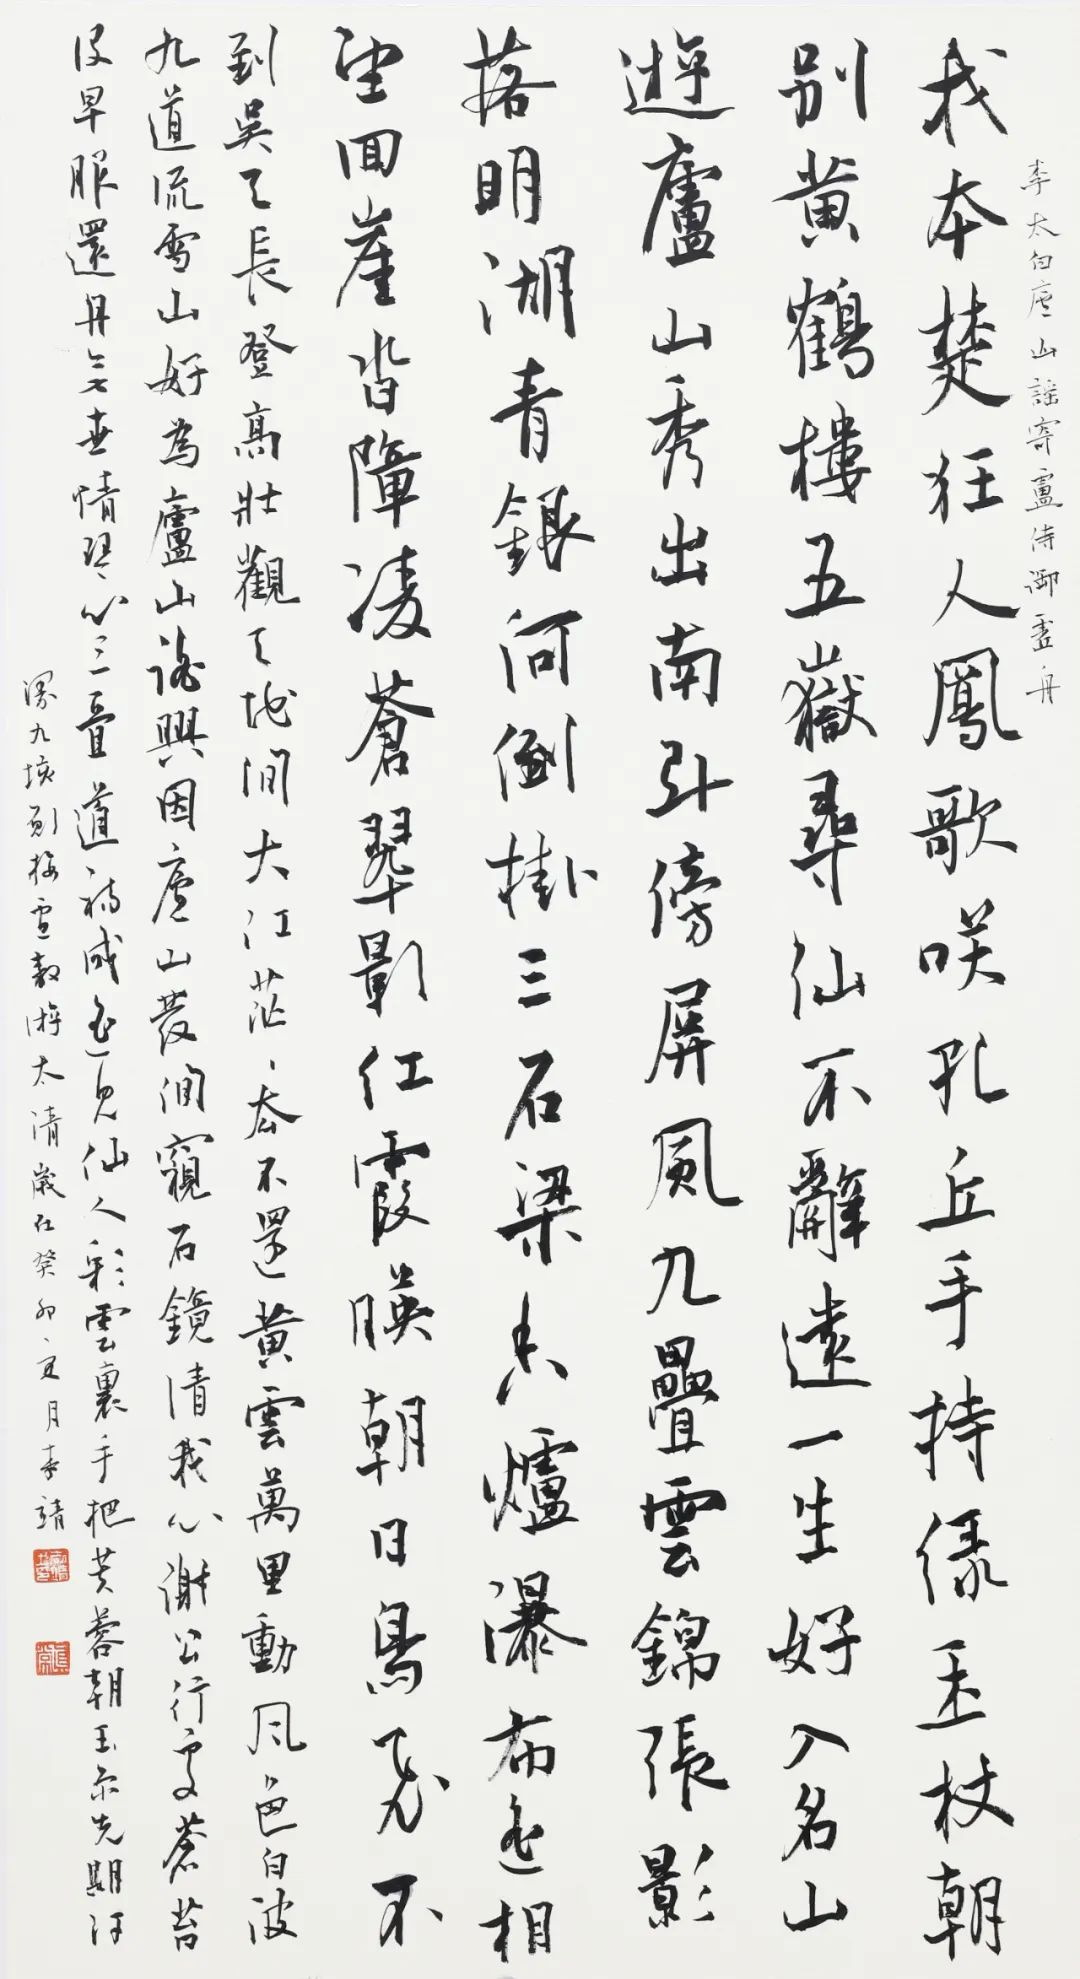 李太白廬山謠寄盧侍御虛舟
我本楚狂人鳳歌咲孔丘手持綠玉杖朝
別黃鶴樓五嶽尋仙不辭遠一生好入名山
遊廬山秀出南斗傍屏風九疊雲錦張影
落明湖青銀河倒掛三石梁香爐瀑布遙相
望回崖沓障凌蒼翠影紅霞映朝日鳥飛不
到吳天長登高壯觀天地間大江茫茫去不還黃雲萬里動風色白波
九道流雪山好為廬山謠興因廬山發閒窺石鏡清我心謝公行處蒼苔
沒早服還丹無世情琴心三疊道初成遙見仙人彩雲裏手把芙蓉朝玉京先期汗
漫九垓願接盧敖遊太清歲在癸卯